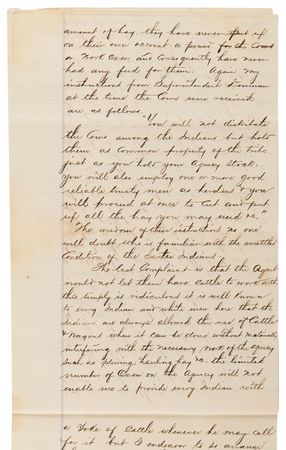 amount of hay, they have never put up
on their own account a pound for the Cows
or Work Oxen and Consequently have never
had any feed for them. Again my
instructions from Superintendent Denman
at the time the Cows were received
are as follows.
"You will not distribute
the Cows among the Indians but hold
them as Common property of the tribe
just as you hold your Agency Stock.
you will also employ one or more good
reliable trusty men as herders & you
will proceed at once to Cut and put
up all the hay you may need &c."
The wisdom of these instructions no one
will doubt who is familiar with the unsettled
Condition of the Santee Indians
The last Complaint is that the Agent
would not let them have Cattle to work with
this simply is rediculous it is well known
to every Indian and white men here that the
Indians are always allowed the use of Cattle
& Wagons when it can be done without materially
interfering with the necessary work of the agency
such as plowing, hauling hay &c. the limited
number of Oxen on the Agency will not
enable me to provide every Indian with
a Yoke of Cattle whenever he may call
for it but I endeavor to so arrange